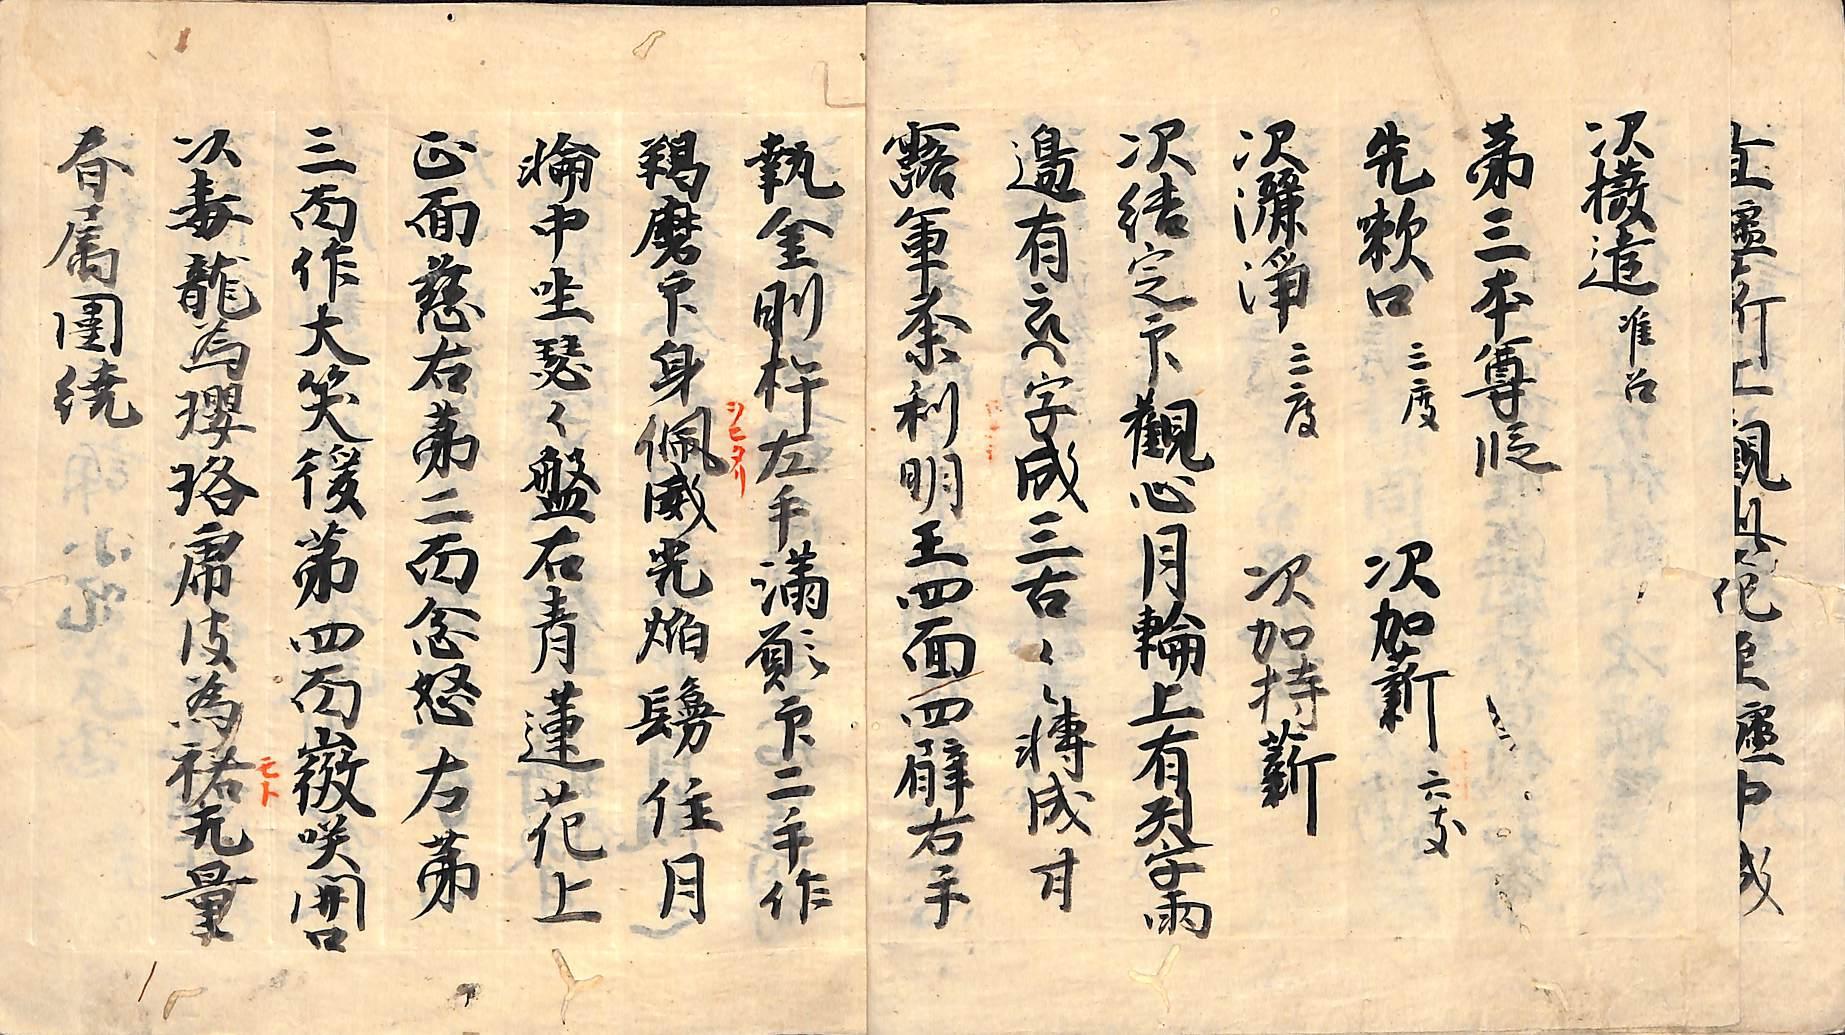 次撥遣准召
第三本尊段
先漱口三度　次加薪六支
次灑淨三度　次加持薪
次結定印觀心月輪上有字兩
邊有字成三古々々轉成甘
露軍荼利明王四面四臂右手
執金剛杵左手滿願印二手作
羯磨印身佩威光焔鬘住月
輪中坐瑟々盤石青蓮花上
正面慈右第二面忿怒左第
三面作大笑後第四面微咲開口
以毒龍為瓔珞虎皮為裙无量
眷属圍繞
シヒタリ
モト